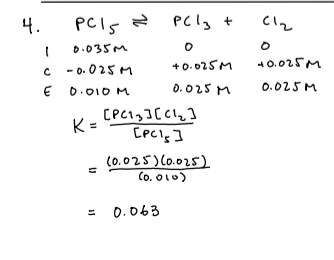 4. PCl5 ⇌ PCl3 + Cl2
I 0.035M 0 0
C -0.025M +0.025M +0.025M
E 0.010M 0.025M 0.025M
K = [PCl3][Cl2] / [PCl5]
= (0.025)(0.025) / (0.010)
= 0.063